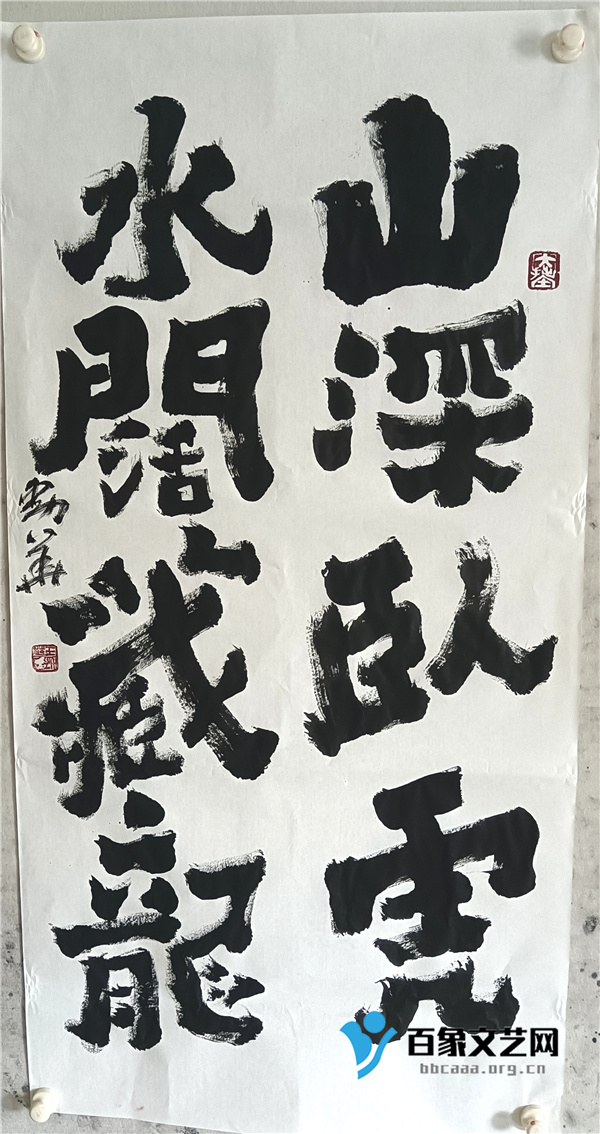 山深卧虎
水阔藏龍
劲華
百象文艺网
bbcaaa.org.cn